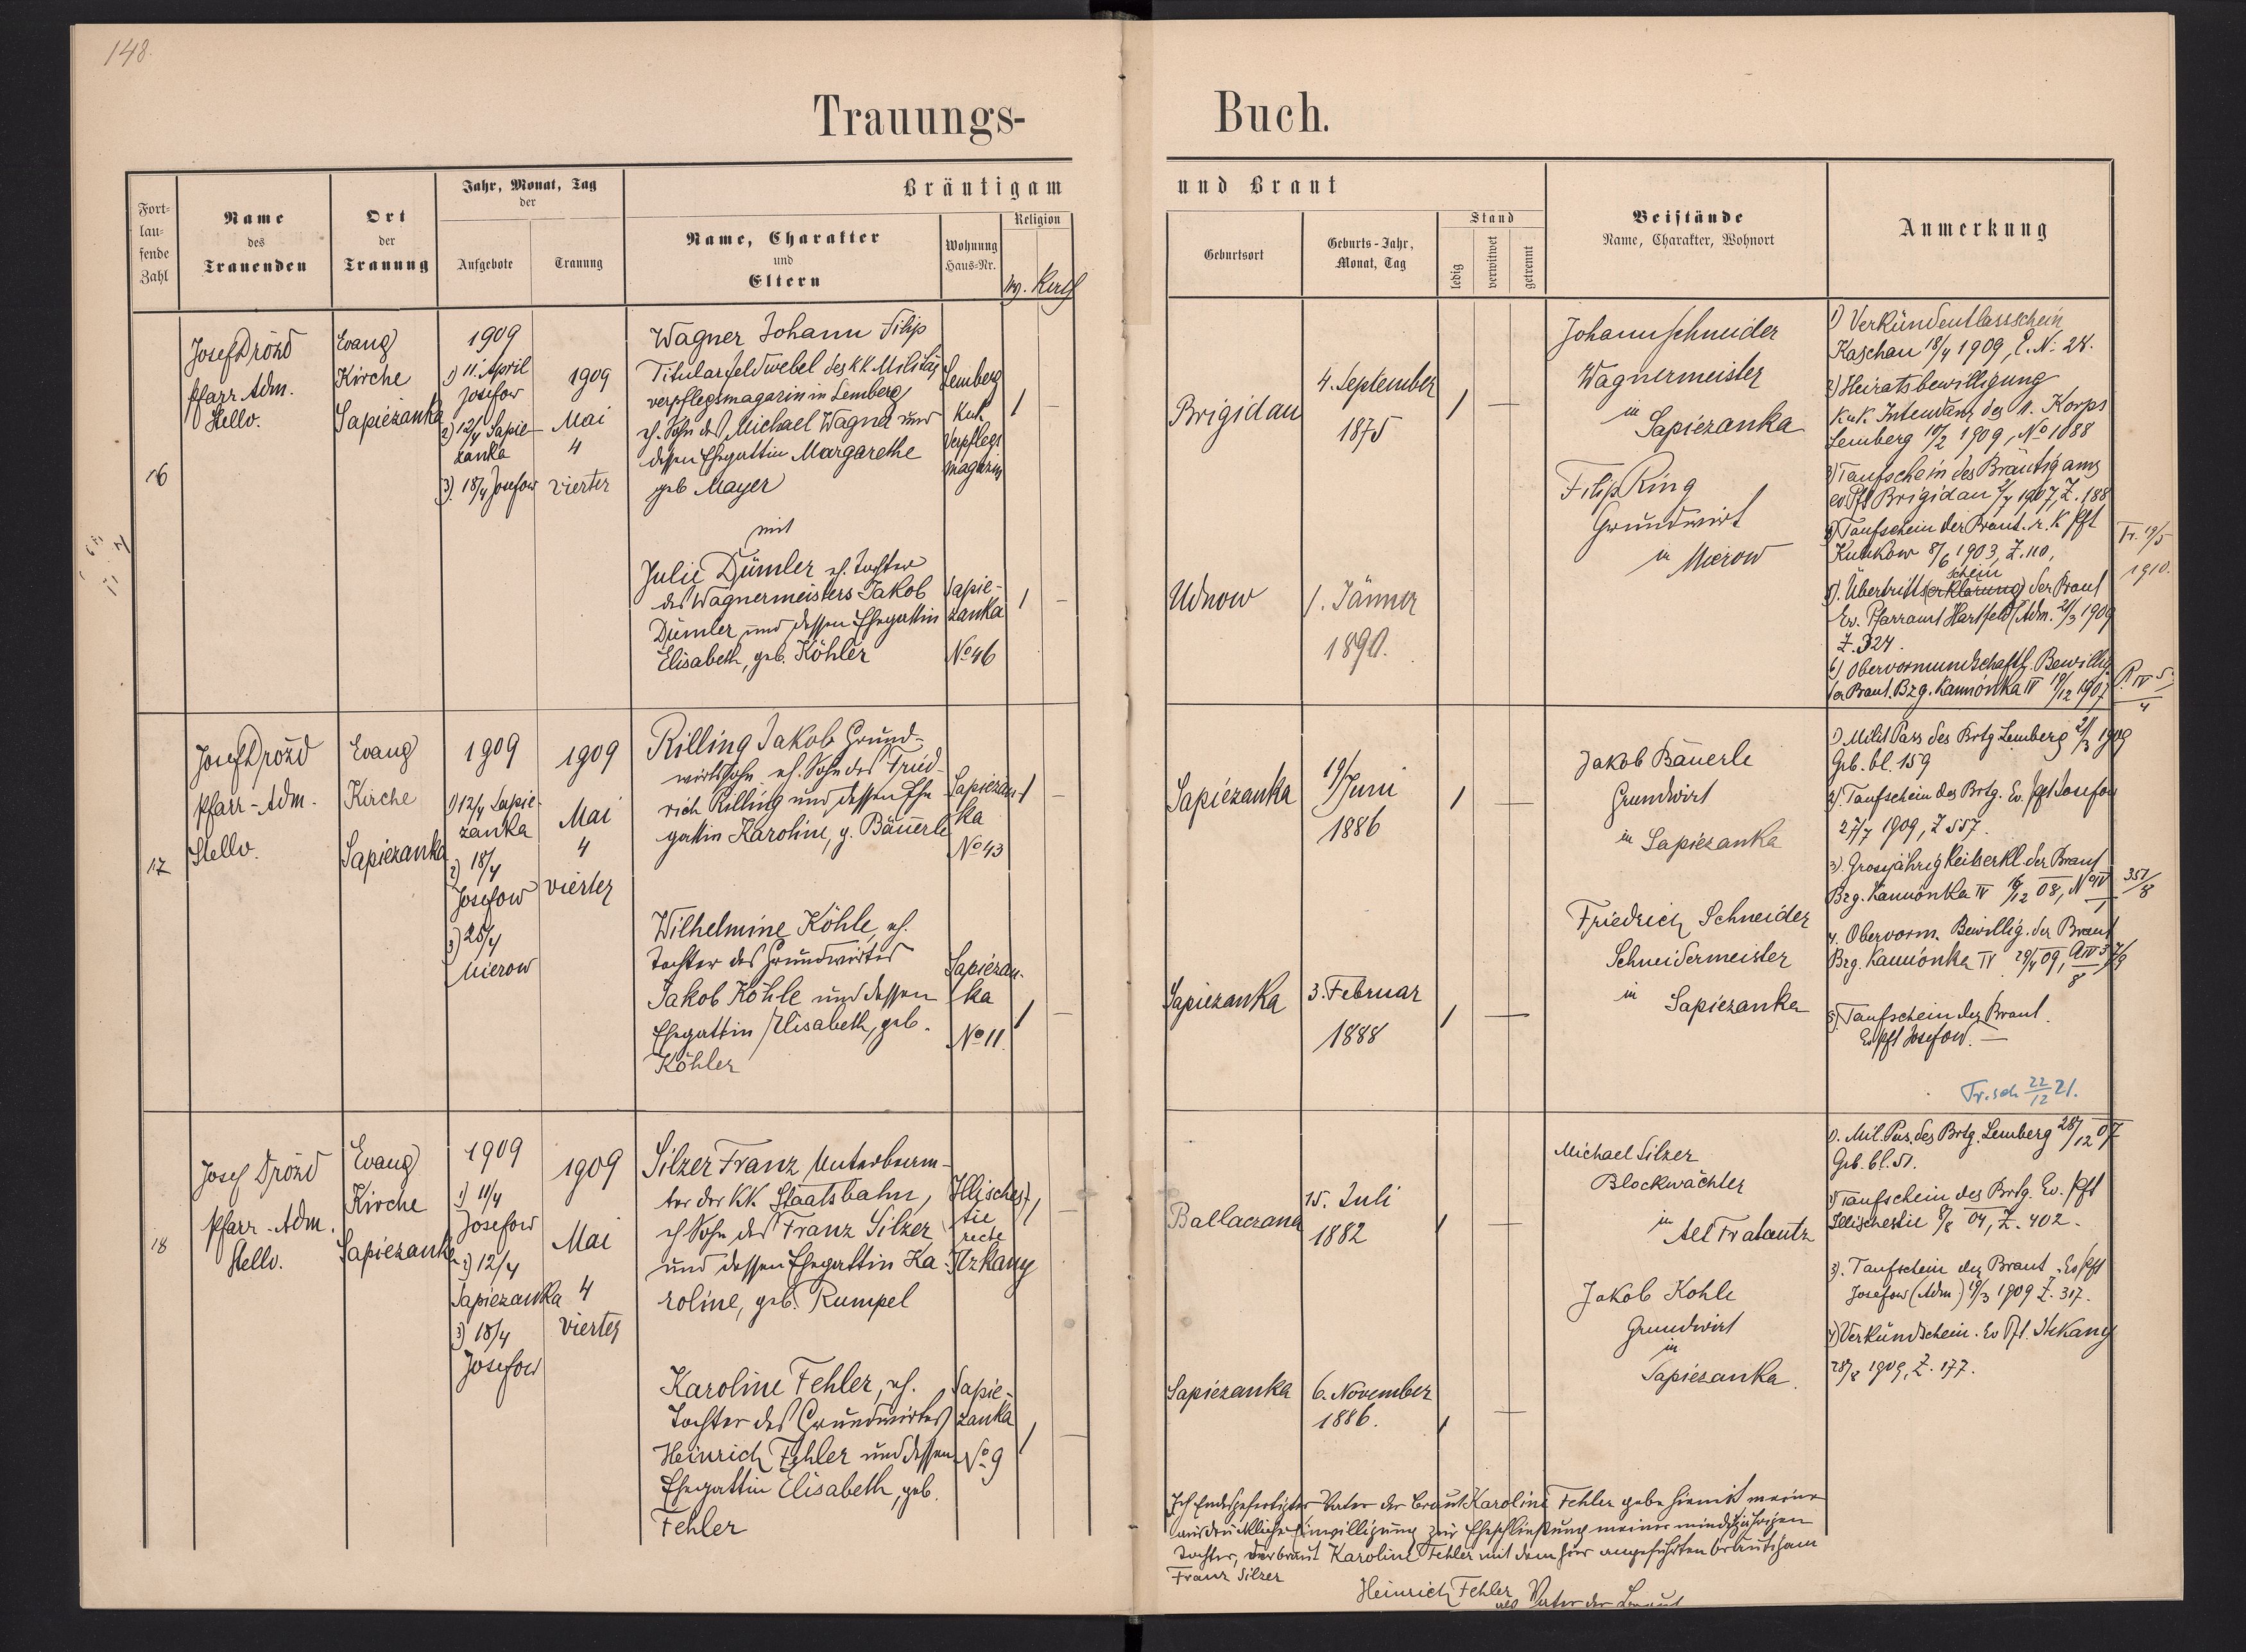 148.
Trauungs-
Buch.
Fort-
lau-
fende
Zahl
Name
des
Trauenden
Ort
der
Trauung
Jahr, Monat, Tag
der
Aufgebote
Trauung
Bräutigam
Name, Charakter
und
Eltern
Wohnung
Haus-Nr.
Religion
und Braut
Geburtsort
Geburts-Jahr,
Monat, Tag
Stand
ledig
verwitwet
getrennt
Beistände
Name, Charakter, Wohnort
Anmerkung
16
Josef Drózd
Pfarr Adm.
Stellv.
Evang
Kirche
Sapiezanka
1909
1) 11. April
Josefow
2) 12/4 Sapie-
zanka
3) 18/4 Josefow
1909
Mai
4
vierter
Wagner Johann Filip
Titularfeldwebel des k.k. Militär
verpflegsmagazin in Lemberg,
eh. Sohn des Michael Wagner und
dessen Ehegattin Margarethe
geb Mayer
Lemberg
KuK
Verpflegs
magazin
Brigidau
4. September
1875
mit
Julie Dümler eh. Tochter
des Wagnermeisters Jakob
Dümler und dessen Ehegattin
Elisabeth, geb. Köhler
Sapie-
zanka
No 46
Udnow
1. Jänner
1890.
Johann Schneider
Wagnermeister
in
Sapiezanka
Filip Ring
Grundwirt
in Mierow
1) Verkündentlassschein
Kaschau 18/4 1909, E. N: 24.
2) Heiratsbewilligung
K.u.K. Intendanz des 11. Korps
Lemberg 10/2 1909, No 1088
3) Taufschein des Bräutigams
ev Pft Brigidau 1907, Z. 188
4) Taufschein der Braut. r. K Pft
Kulikow 8/6 1903, Z. 110,
schein
5). Übertritts(erklärung) der Braut
Ev. Pfarramt Hartfeld (Adm. 21/3 1909
Z. 324.
6) Obervormundschaftl. Bewillig
der Braut. Bzg. Kamionka IV 19/12 1907
P. IV 5
4
Tr. 19/5
1910.
17
Josef Drózd
Pfarr-Adm.
Stellv.
Evang
Kirche
Sapiezanka
1909
1) 12/4 Sapie-
zanka
2) 18/4
Josefow
3) 25/4
Mierow
1909
Mai
4
vierter
Rilling Jakob Grund-
wirtssohn eh. Sohn des Fried-
rich Rilling und dessen Ehe
gattin Karoline, g. Bäuerle
Sapiezan-
ka
No 43
Sapiezanka
19/Juni
1886
Wilhelmine Köhle, eh.
Tochter des Grundwirtes
Jakob Köhle und dessen
Ehegattin Elisabeth, geb.
Köhler
Sapiezan-
ka
No 11.
Sapiezanka
3. Februar
1888
Jakob Bäuerle
Grundwirt
in Sapiezanka
Friedrich Schneider
Schneidermeister
in
Sapiezanka
1) Milit Pass des Brtg Lemberg 21/3 1909
Grb. bl. 159
2). Taufschein des Brtg. Ev. Pft Josefow
27/7 1909, Z 557.
3) Grossjährigkeitserkl. der Braut
Bzg. Kamionka IV 12 08, No IV 351/8
4. Obervorm. Bewillig. der Braut
Bzg. Kamionka IV 29/4 09,
5) Taufschein der Braut.
Ev Pft Josefow. —
Tr. sch 22/12 21.
18
Josef Drózd
Pfarr-Adm.
Stellv.
Evang
Kirche
Sapiezanka
1909
1) 11/4
Josefow
2) 12/4
Sapiezanka
3) 18/4
Josefow
1909
Mai
4
vierter
Silzer Franz Unterbeam-
ter der K.K. Staatsbahn,
eh Sohn des Franz Silzer
und dessen Ehegattin Ka-
roline, geb. Rumpel
Illisches-
tie
recte
Itzkany
Ballaczana
15. Juli
1882
Karoline Fehler, eh.
Tochter des Grundwirtes
Heinrich Fehler und dessen
Ehegattin Elisabeth, geb.
Fehler
Sapie-
zanka
No 9
Sapiezanka
6. November
1886.
Michael Silzer
Blockwächter
in
Alt Fratautz
Jakob Kohle
Grundwirt
in
Sapiezanka.
1). Mil. Pas. des Brtg. Lemberg 28/12 07
Grb. bl. 51.
2) Taufschein des Brtg. Ev. Pft
Illischestie 8/8 04, Z. 402.
3). Taufschein der Braut. Ev Pft
Josefow (Adm.) 19/3 1909 Z. 317.
4) Verkündschein. Ev Pft. Itzkany
1909, Z. 177.
Ich Endesgefertigter Vater der Braut Karoline Fehler gebe hiemit meine
ausdrückliche Einwilligung zur Eheschließung meiner minderjährigen
Tochter, der Braut Karoline Fehler mit dem hier angeführten Bräutigam
Franz Silzer
Heinrich Fehler
als Vater der Braut